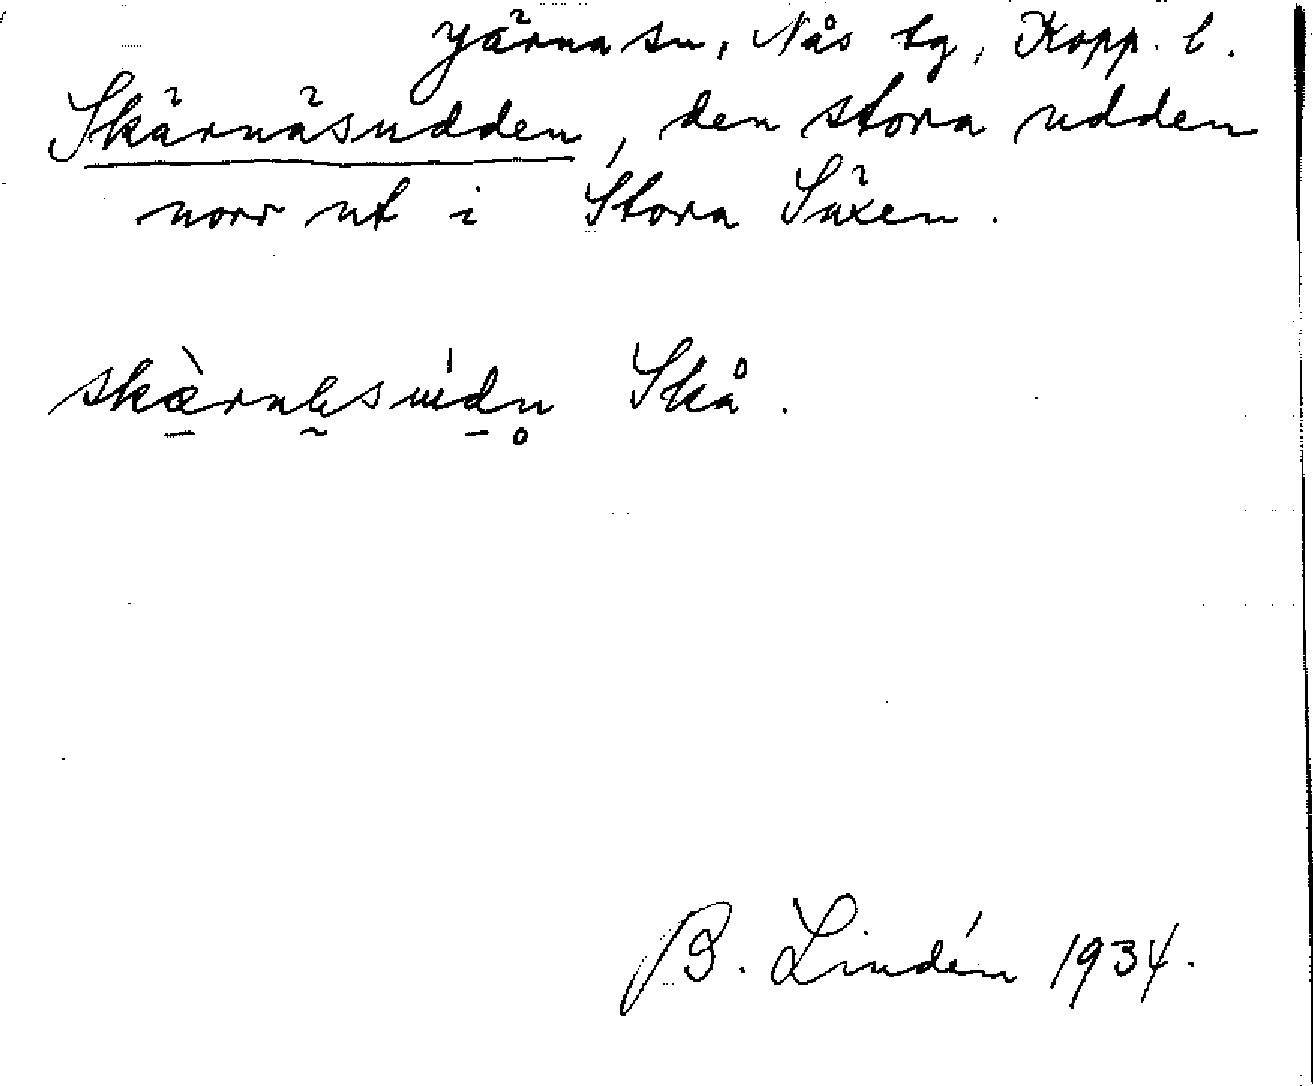 Järna sn, Nås tg, Kopp. l.
Skärnäsudden, den stora udden
norr ut i Stora Säxen.
Skå.
B. Lindén 1934.